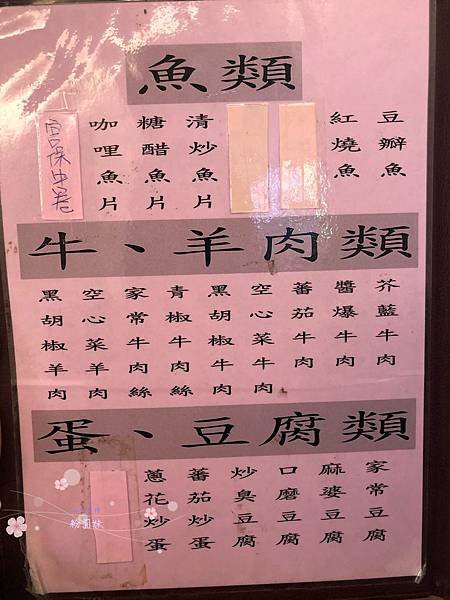 魚類
豆瓣魚
紅燒魚
清炒魚片
糖醋魚片
咖哩魚片
宮保中卷
牛、羊肉類
芥藍牛肉
醬爆牛肉
蕃茄牛肉
空心菜牛肉
黑胡椒牛肉
青椒牛肉絲
家常牛肉絲
空心菜羊肉
黑胡椒羊肉
蛋、豆腐類
家常豆腐
麻婆豆腐
口磨豆腐
炒臭豆腐
蕃茄炒蛋
蔥花炒蛋
粉圓妹